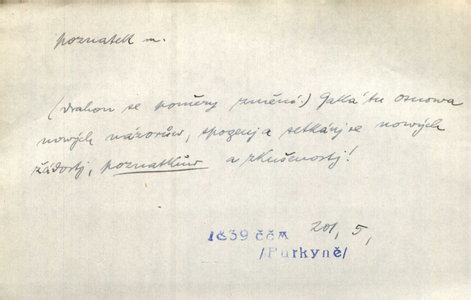 poznatek m.
se poměry změnó.) Jaká tu osnowa
nowých názorůw, spogenj a setkánj se nowých
žádostj, poznatkůw a zkušenostj!
1839 ččm 201, 5,
/Purkyně/